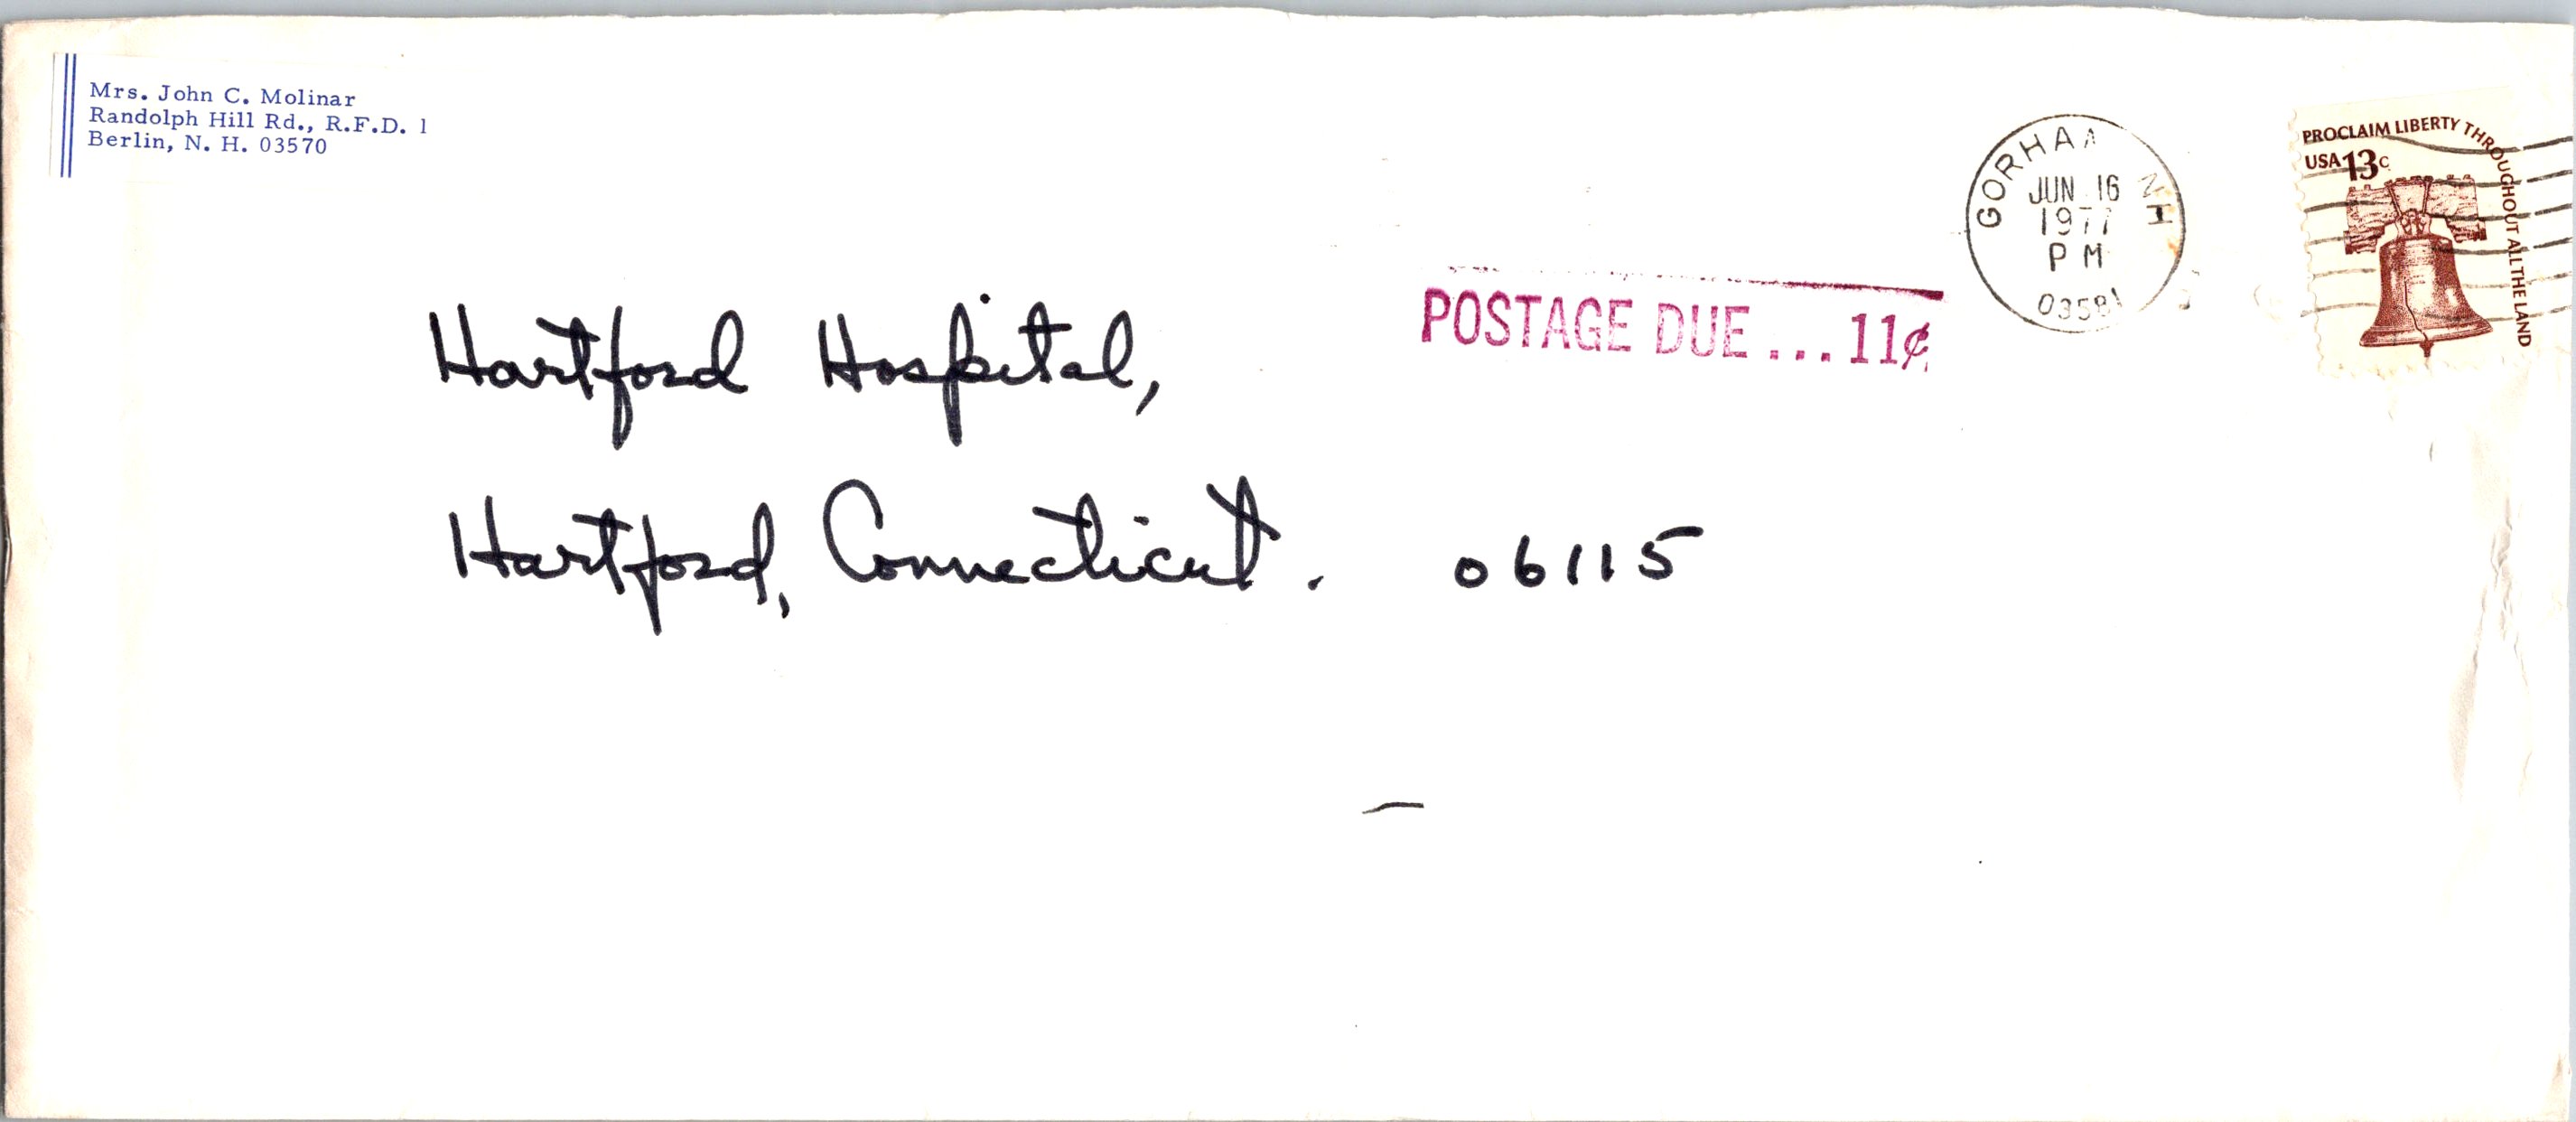 Mrs. John C. Molinar
Randolph Hill Rd., R.F.D. 1
Berlin, N. H. 03570
GORHAM NH
JUN 16
1977
PM
03581
PROCLAIM LIBERTY THROUGHOUT ALL THE LAND
USA 13c
POSTAGE DUE ... 11¢
Hartford Hospital,
Hartford, Connecticut. 06115